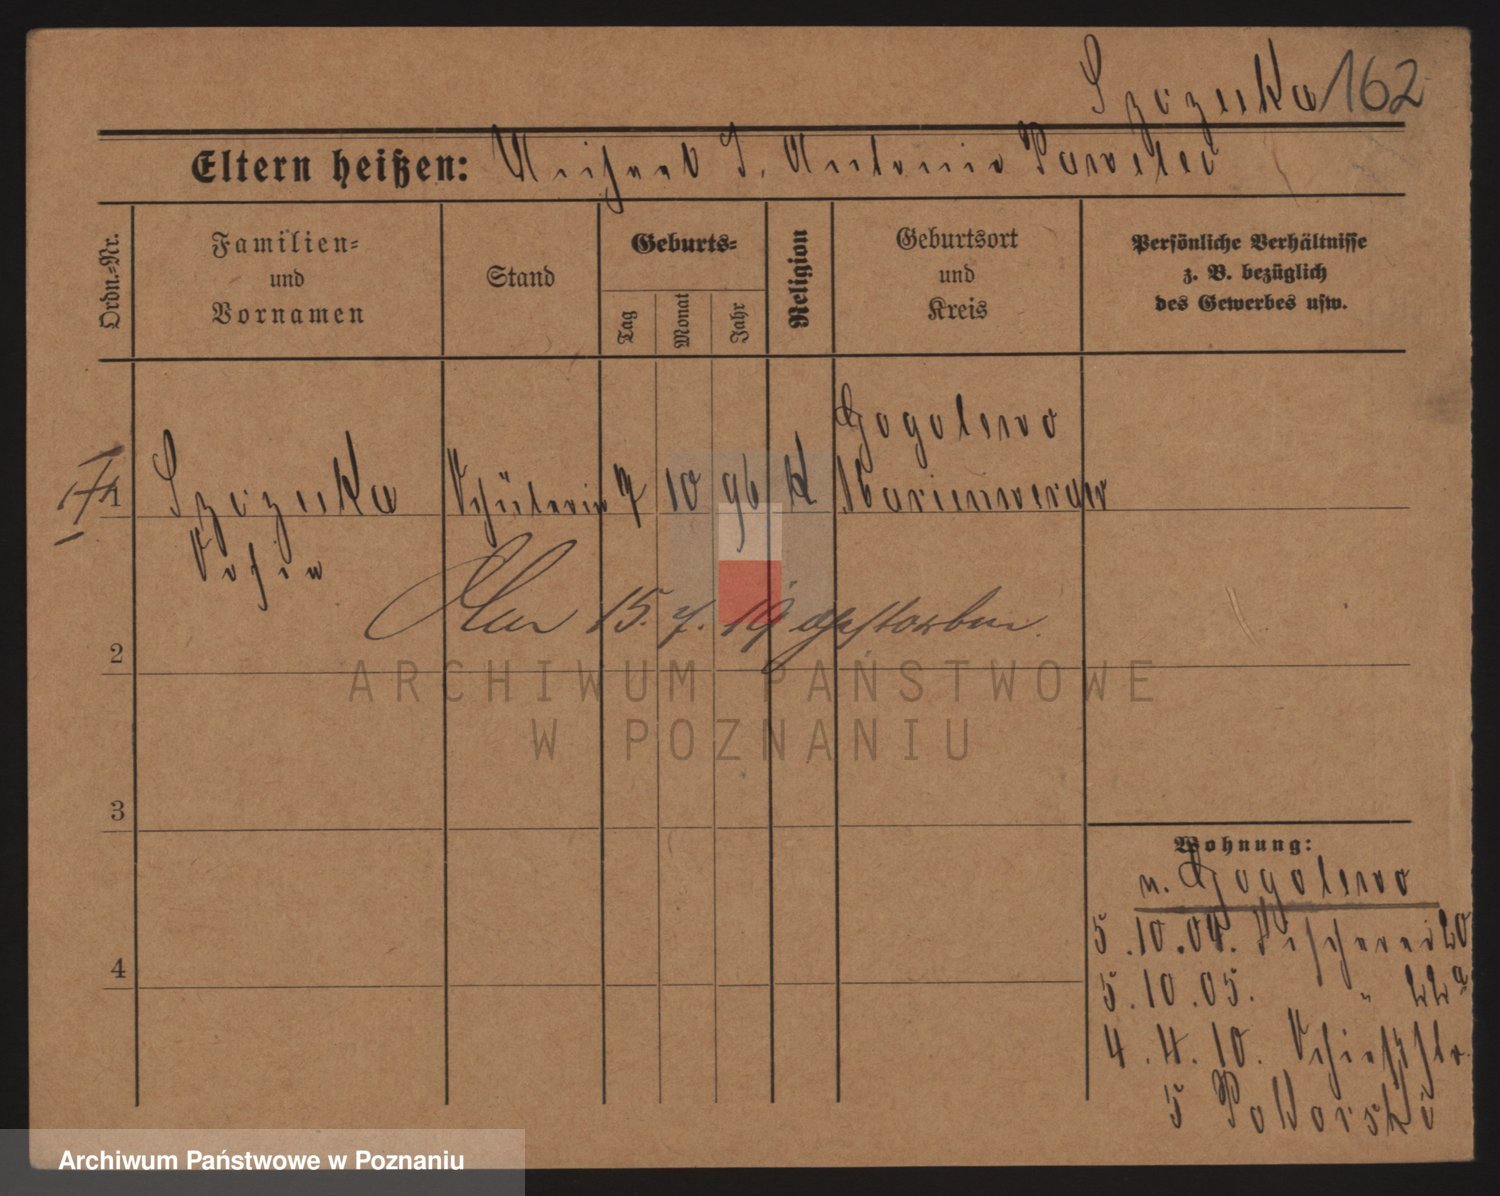 Szczuka 162
Eltern heißen: S. Antonie Pawelec
Ordn.-Nr.
Familien-
und
Vornamen
Stand
Geburts-
Tag
Monat
Jahr
Religion
Geburtsort
und
Kreis
Persönliche Verhältnisse
z. B. bezüglich
des Gewerbes usw.
1 Szczuka Schülerin 7 10 96 k Gogolewo
Marienwerder
Am 15. 7. 19 gestorben.
2
3
4
Wohnung:
n. Gogolewo
5.10.04. Fischerei 20
5.10.05. " 22a
4.4.10. Schießstr.
5
ARCHIWUM PAŃSTWOWE
W POZNANIU
Archiwum Państwowe w Poznaniu